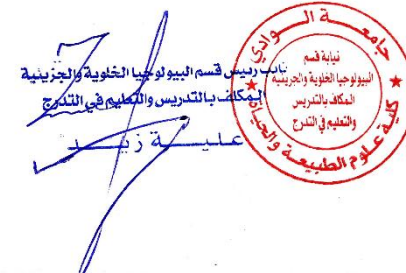 نائب رئيس قسم البيولوجيا الخلوية والجزيئية
المكلف بالتدريس والتعليم في التدرج
عليــة زيــد
جامعــة الــوادي
نيابة قسم
البيولوجيا الخلوية والجزيئية
المكلف بالتدريس
والتعليم في التدرج
كلية علوم الطبيعة والحياة